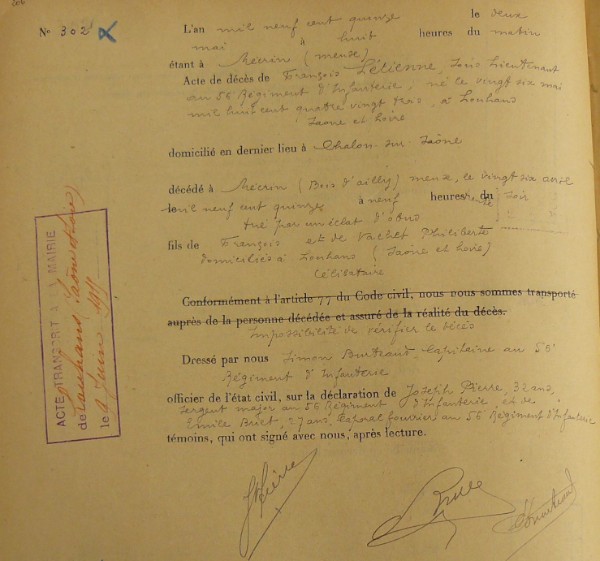 206
N° 302
L'an mil neuf cent quinze le deux
mai à huit heures du matin
étant à Mécrin (meuse)
Acte de décès de François Létienne, Sous Lieutenant
au 56 Régiment d'Infanterie, né le vingt six mai
mil huit cent quatre vingt trois, à Louhans
Saône et Loire
domicilié en dernier lieu à Chalon-sur-Saône
décédé à Mécrin (Bois d'ailly) meuse, le vingt six avril
mil neuf cent quinze à neuf heures du soir
tué par un éclat d'obus
fils de François et de Vachet Philiberte
domiciliés à Louhans (Saône et Loire)
Célibataire
Conformément à l'article 77 du Code civil, nous nous sommes transporté
auprès de la personne décédée et assuré de la réalité du décès.
Impossibilité de vérifier le décès
Dressé par nous Simon Capitaine au 56e
Régiment d'Infanterie
officier de l'état civil, sur la déclaration de Joseph Pierre, 32 ans,
Sergent major au 56 Régiment d'Infanterie et de
Emile 27 ans, Caporal fourrier au 56 Régiment d'Infanterie
témoins, qui ont signé avec nous, après lecture.
ACTE TRANSPORIT A LA MAIRIE
de Louhans (Saône et Loire)
le Juin
Pierre